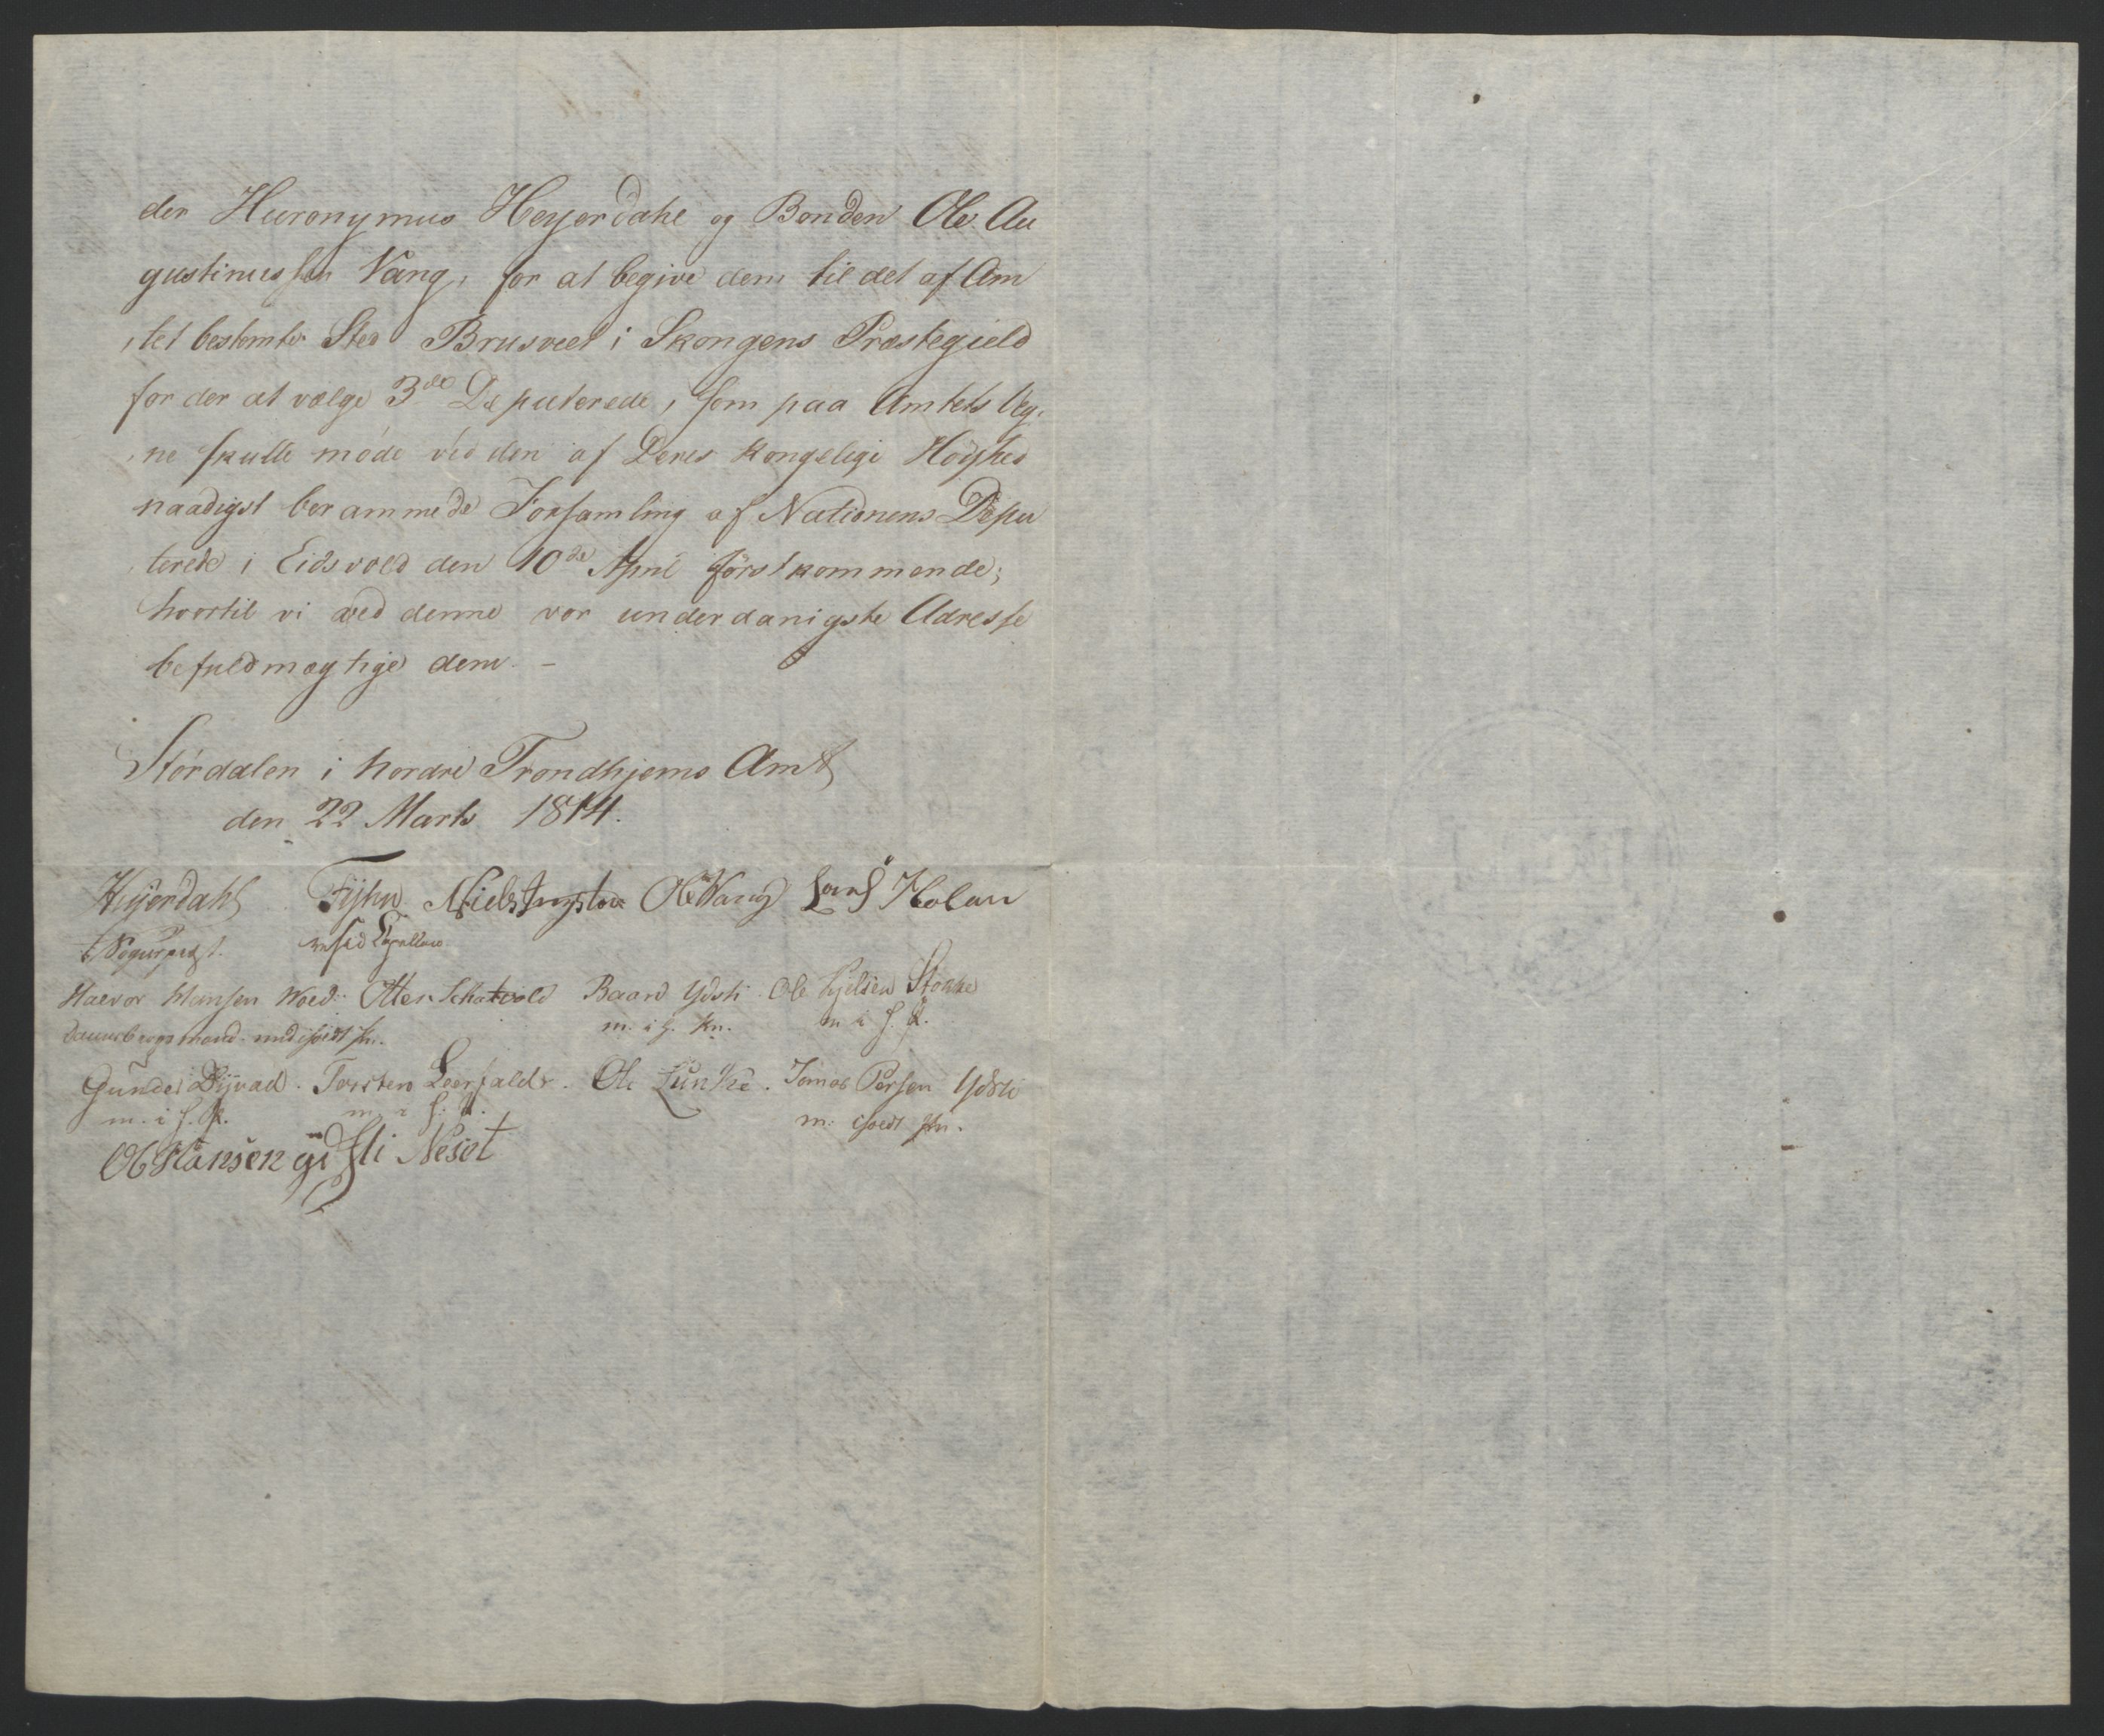 der Hieronymus Heyerdahl og Bonden Ole Au
gustinussøn Vang, for at begive dem til det af Am
tet bestemte Sted Brusveet i Skongens Præstegield
for der at vælge 3de Deputerede, som paa Amtets Veg,
ne skulle møde ved den af Deres Kongelige Høyhed
naadigst berammede Forsamling af Nationens Depu
terede i Eidsvold den 10de April førstkommende;
hvortil vi ved denne vor underdanigste Adresse
befuldmægtige dem. –
Størdalen i Nordre Trondhjems Amt
den 22 Marts 1814.
Heyerdahl Niels Ole Vang Lars Holan
Sogneprest. resid Capellan
Halvor Hansen Woed. Otter Schatvold Baard Ydsti Ole Kjelsen Stokke
Dannebrogsmand. med ihold Pen. m. i h. Pn. m i h. P.
Gunder Dyvad. Torsten Leerfald. Ole Lunke. Jonas Persen Ydsti
m. i h. P. m i h. P. m. ihold Pn.
Ole Hansen Neset